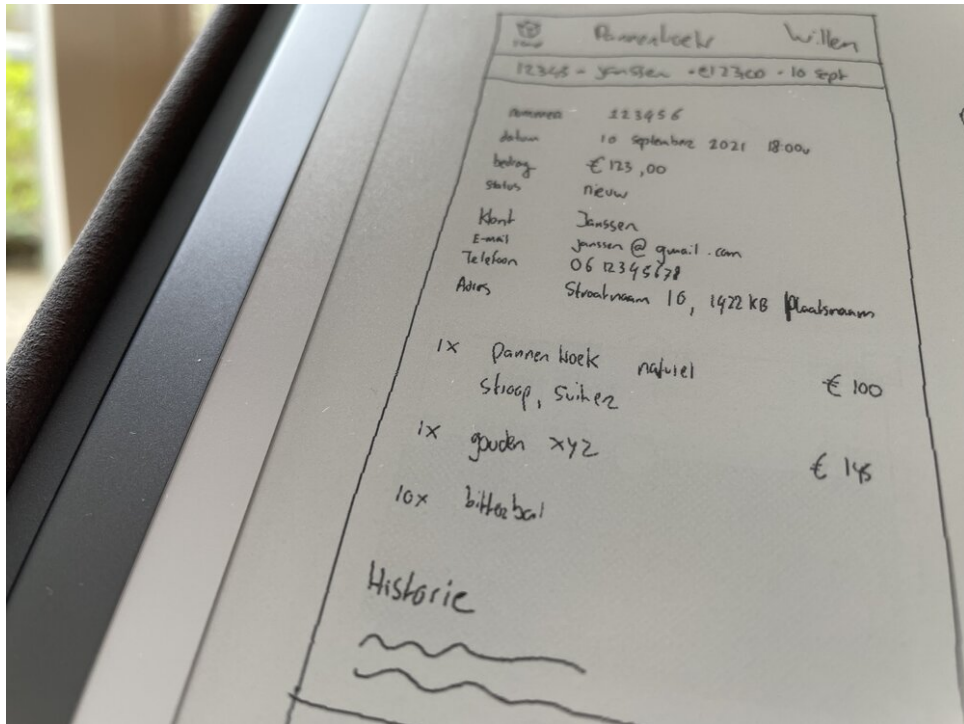 Pannenkoek Willem
12345 - Janssen - €123,00 - 10 sept
nummer 123456
datum 10 september 2021 18:00u
bedrag € 123,00
status nieuw
Klant Janssen
E-mail janssen@gmail.com
Telefoon 06 12345678
Adres Straatnaam 16, 1422 KB Plaatsnaam
1x Pannenkoek naturel € 100
stroop, suiker
1x gouden xyz € 145
10x bitterbal
Historie